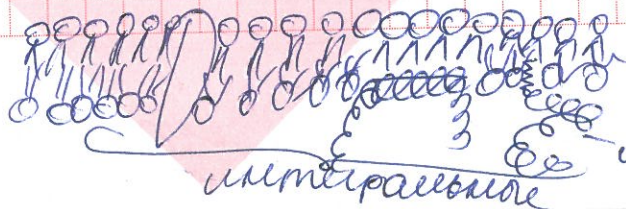 интегральные